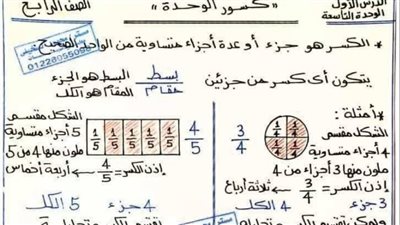 الدرس الأول
الوحدة التاسعة
« كسور الوحدة »
الصف الرابع
* الكسر هو جزء أو عدة أجزاء متساوية من الواحد الصحيح
01228055096
يتكون أى كسر من جزئين
بسط
مقام
البسط هو الجزء
المقام هو الكل
* أمثلة :
الشكل مقسم
4 أجزاء متساوية
ملون منها 3 أجزاء من 4
إذن الكسر = 3/4 ثلاثة أرباع
3 جزء 4 الكل
3/4
1/4 1/4 1/4 1/4
الشكل مقسم
5 أجزاء متساوية
ملون منها 4 من 5
إذن الكسر = 4/5 أربعة أخماس
4 جزء 5 الكل
4/5
1/5 1/5 1/5 1/5 1/5